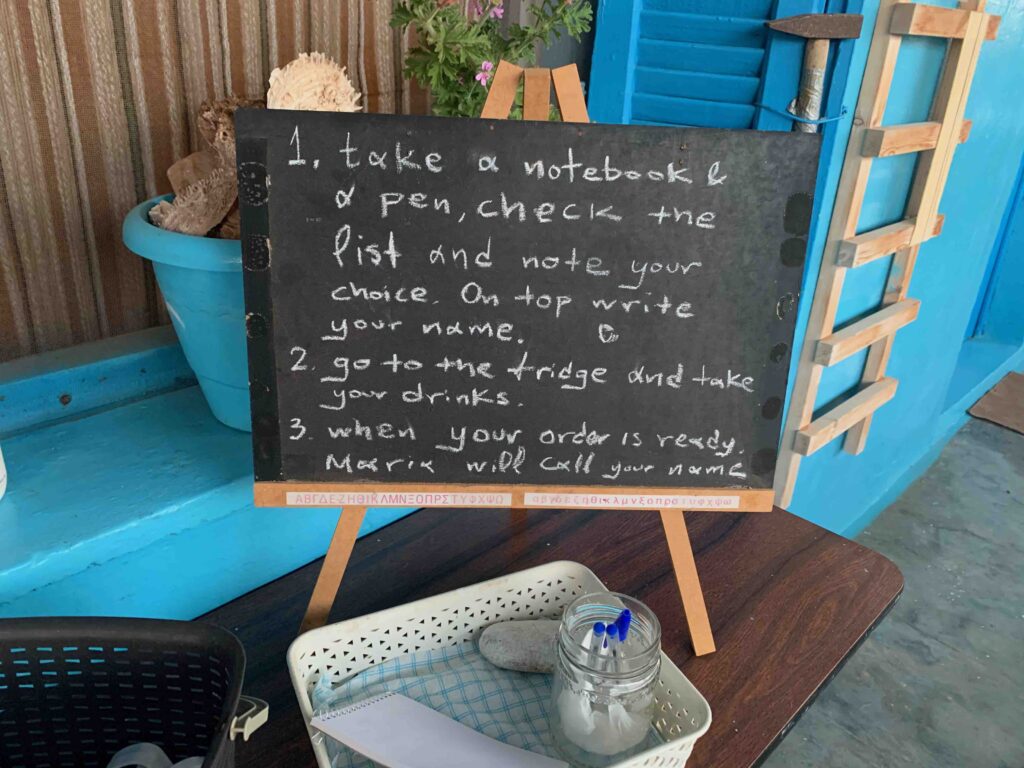 1. take a notebook &
a pen, check the
list and note your
choice. On top write
your name.
2. go to the fridge and take
your drinks.
3. when your order is ready.
Maria will call your name
ΑΒΓΔΕΖΗΘΙΚΛΜΝΞΟΠΡΣΤΥΦΧΨΩ αβγδεζηθικλμνξοπρστυφχψω